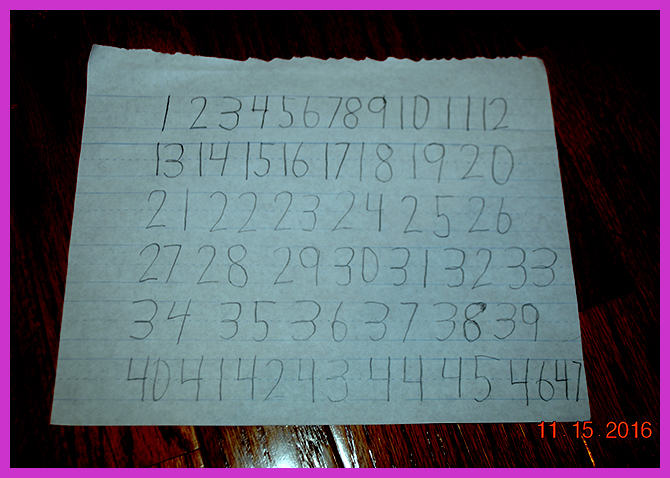 1 2 3 4 5 6 7 8 9 10 11 12
13 14 15 16 17 18 19 20
21 22 23 24 25 26
27 28 29 30 31 32 33
34 35 36 37 38 39
40 41 42 43 44 45 46 47
11 15 2016